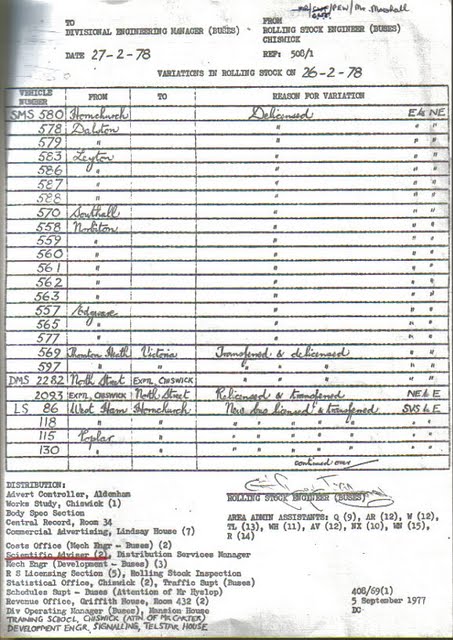 TO FROM
DIVISIONAL ENGINEERING MANAGER (BUSES) ROLLING STOCK ENGINEER (BUSES)
CHISWICK
DATE 27-2-78 REF: 508/1
VARIATIONS IN ROLLING STOCK ON 26-2-78
VEHICLE NUMBER FROM TO REASON FOR VARIATION
SMS 580 Hornchurch Delicensed E4 NE
578 Dalston " " "
579 " " " "
583 Leyton " " "
586 " " " "
587 " " " "
588 " " " "
570 Southall " " "
558 Norbiton " " "
559 " " " "
560 " " " "
561 " " " "
562 " " " "
563 " " " "
557 Edgware " " "
565 " " " "
577 " " " "
569 Thornton Heath Victoria Transferred & delicensed " "
597 " " " " " " " "
DMS 2282 North Street EXPTL, CHISWICK " " " " "
2093 EXPTL, CHISWICK North Street Relicensed & transferred NE & E
LS 86 West Ham Hornchurch New bus licensed & transferred SVS & E
118 " " " " " " " " "
115 Poplar " " " " " " " "
130 " " " " " " " " "
continued over
DISTRIBUTION: ROLLING STOCK ENGINEER (BUSES)
Advert Controller, Aldenham
Works Study, Chiswick (1)
Body Spec Section AREA ADMIN ASSISTANTS: Q (9), AR (12), W (12),
Central Record, Room 34 TL (13), WH (11), AV (12), NX (10), WN (15),
Commercial Advertising, Lindsay House (7) R (14)
Costs Office (Mech Engr - Buses) (2)
Scientific Adviser (2), Distribution Services Manager
Mech Engr (Development - Buses) (3)
R S Licensing Section (5), Rolling Stock Inspection
Statistical Office, Chiswick (2), Traffic Supt (Buses)
Schedules Supt - Buses (Attention of Mr Hyslop) 408/69(1)
Revenue Office, Griffith House, Room 432 (2) 5 September 1977
Div Operating Manager (Buses), Mansion House DC
TRAINING SCHOOL, CHISWICK (ATTN OF MR CARTER)
DEVELOPMENT ENGR, SIGNALLING, TELSTAR HOUSE